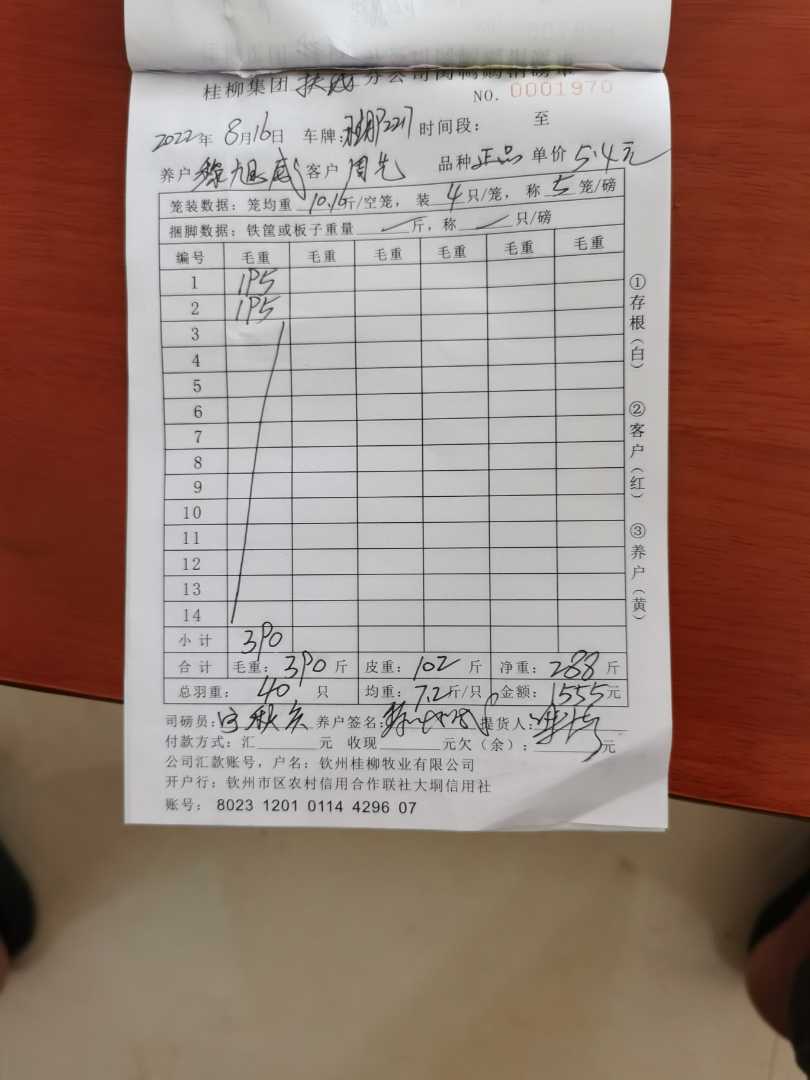 桂柳集团 分公司
NO. 0001970
2022年 8月16日 车牌: 时间段: 至
养户 客户 周先 品种 正品 单价 5.4元
笼装数据: 笼均重 斤/空笼, 装 4 只/笼, 称 5 笼/磅
捆脚数据: 铁筐或板子重量 斤, 称 只/磅
编号 毛重 毛重 毛重 毛重 毛重 毛重
1 195
2 195
3
4
5
6
7
8
9
10
11
12
13
14
小计 390
合计 毛重: 390 斤 皮重: 102 斤 净重: 288 斤
总羽重: 40 只 均重: 7.2斤/只 金额: 1555元
司磅员: 养户签名: 提货人:
付款方式: 汇 元 收现 元欠(余): 元
公司汇款账号, 户名: 钦州桂柳牧业有限公司
开户行: 钦州市区农村信用合作联社大垌信用社
账号: 8023 1201 0114 4296 07
①存根(白) ②客户(红) ③养户(黄)